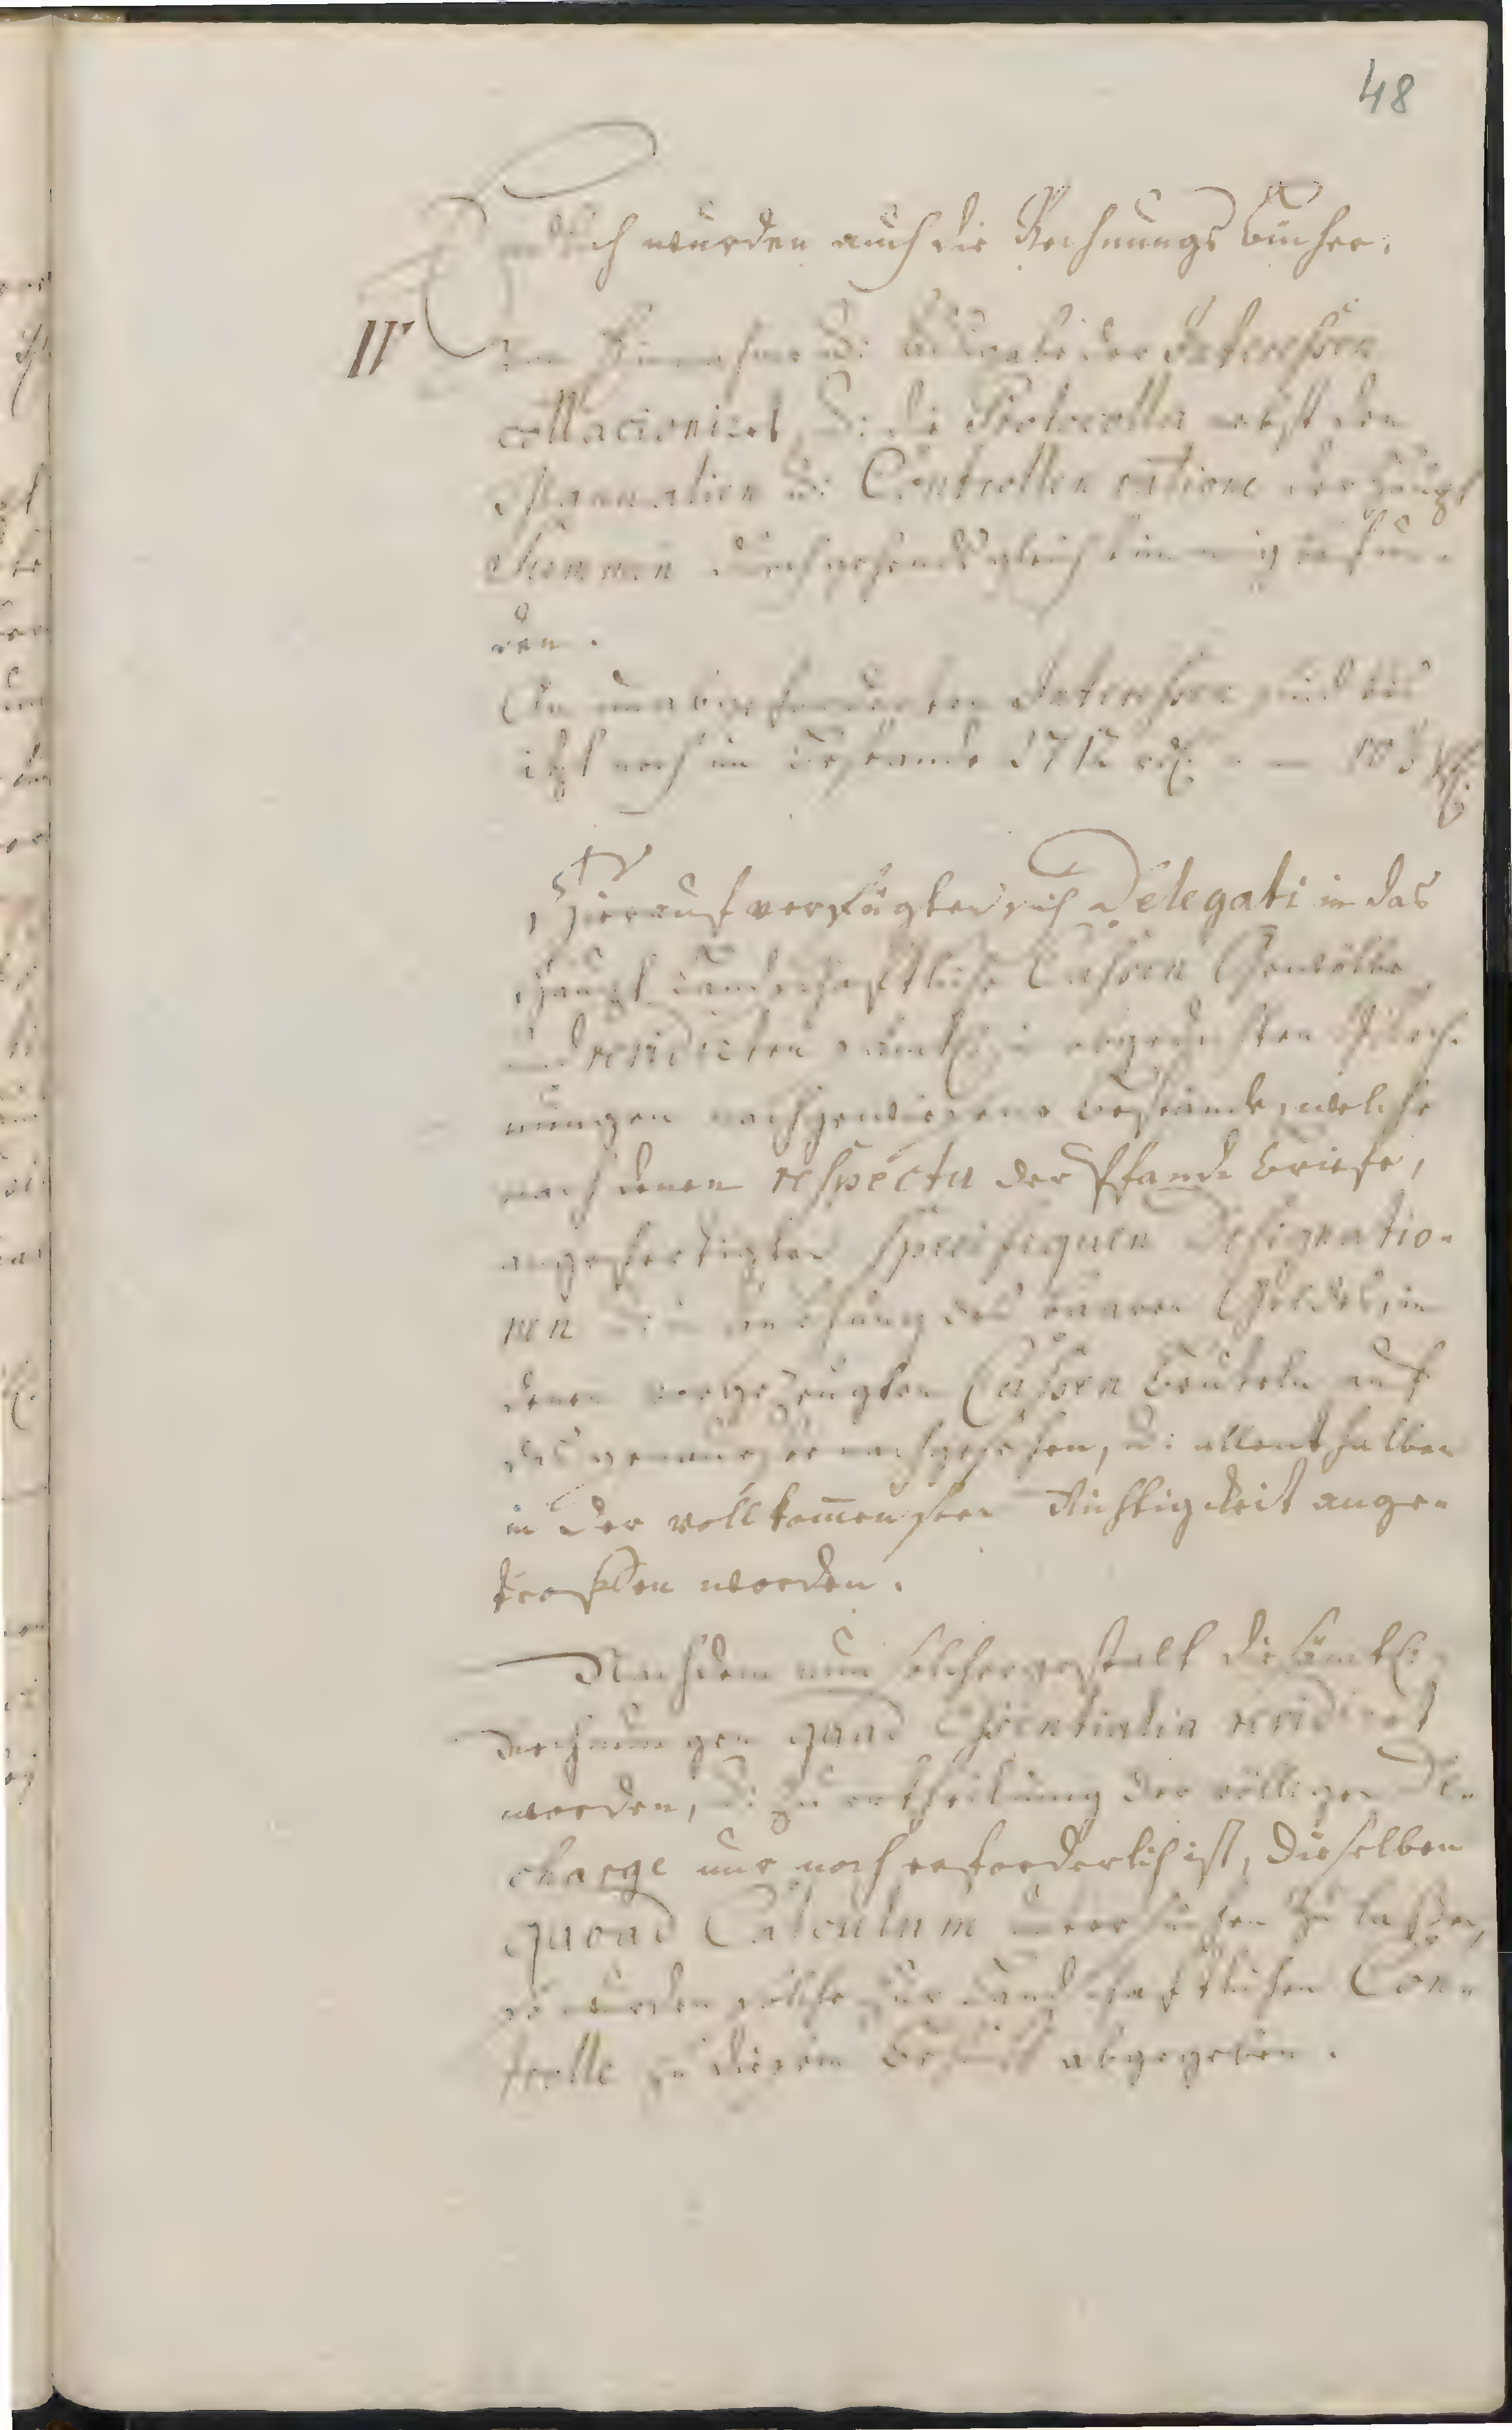 48
Endlich wurden auch die Rechnungs Bücher,
IV
von Einnahme u: Ausgabe der Interessen
collationiret, u: die Protocolla nebst den
Manualien u: Controllen ratione der Haupt
Summen durchgehends gleichstimmig befun-
den.
An unabgeforderten Interessen sind bis
itzt noch im Bestande 2712 rtl:
Hierauf verfügten sich Delegati in das
Haupt Landschaftliche Cassen Gewölbe
und revidirten sämtl: in abgedachten Rech-
nungen nachgewiesene Bestände, welche
nach denen respectu der Pfand Briefe,
angefertigten specifiquen Designatio-
nen u: in Ansehung des baaren Geldes, in
denen vorgezeugten Cassen Beuteln auf
das genaueste nachgesehen, u: allenthalben
in der vollkommensten Richtigkeit ange-
troffen worden.
Nachdem nun solchergestalt die sämtl:
Rechnungen quoad Essentialia revidiret
worden, u: zu Ertheilung der völligen De-
charge nur noch erforderlich ist, dieselben
quoad Calculum untersuchen zu laßen,
so wurden solche zur Landschaftlichen Con-
trolle zu diesem Behuff abgegeben.